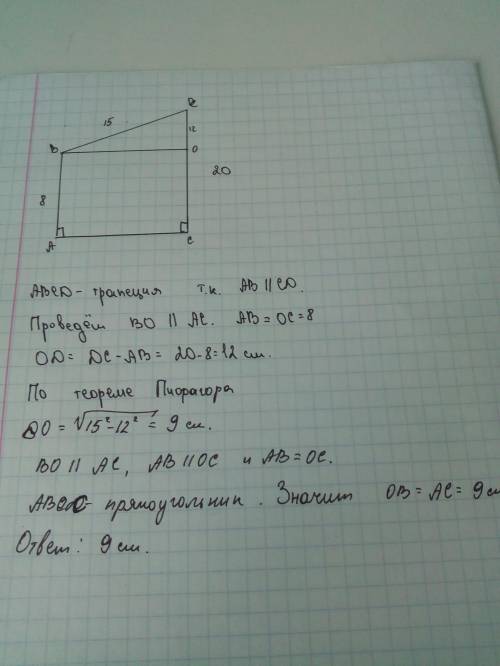 D
15
12
B
O
20
8
A
C
ABCD - трапеция т.к. AB || CD.
Проведём BO || AC. AB = OC = 8
OD = DC - AB = 20 - 8 = 12 см.
По теореме Пифагора
BO = √15² - 12² = 9 см.
BO || AC, AB || OC и AB = OC.
ABOC - прямоугольник. Значит OB = AC = 9 см
Ответ: 9 см.